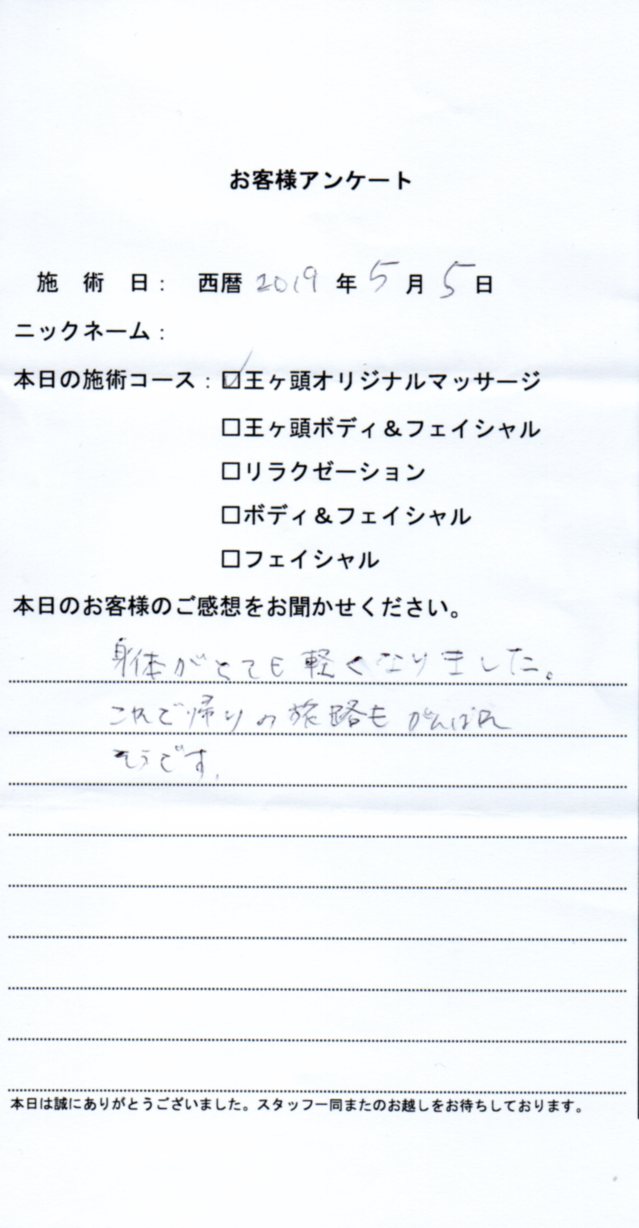 お客様アンケート
施術日： 西暦 2019 年 5 月 5 日
ニックネーム：
本日の施術コース：☑王ヶ頭オリジナルマッサージ
□王ヶ頭ボディ＆フェイシャル
□リラクゼーション
□ボディ＆フェイシャル
□フェイシャル
本日のお客様のご感想をお聞かせください。
身体がとても軽くなりました。
これで帰りの旅路もがんばれ
そうです。
本日は誠にありがとうございました。スタッフ一同またのお越しをお待ちしております。